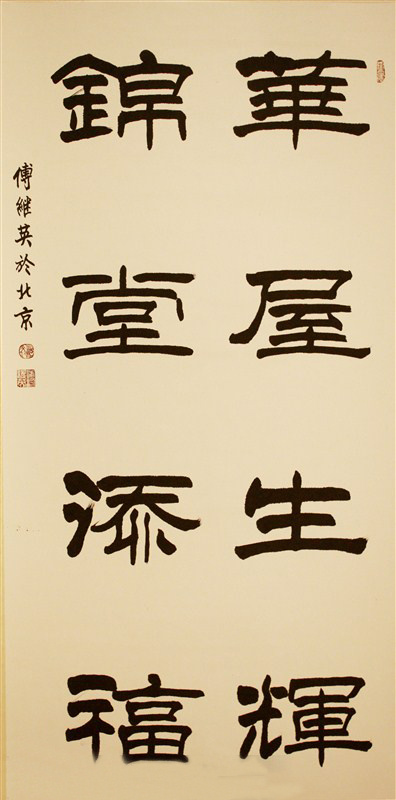 華屋生輝
錦堂添福
傅继英於北京